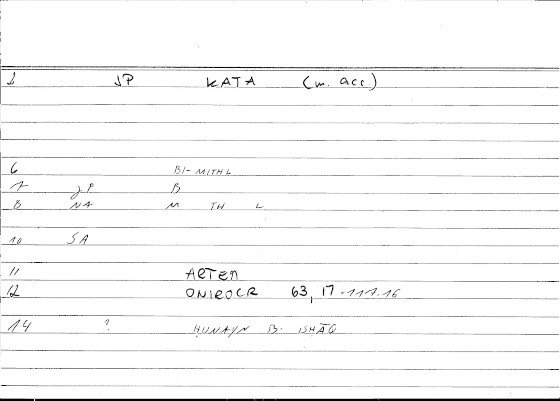 1 JP KATA (m. acc)
6 BI-MITHL
7 JP B
8 NA M TH L
10 SA
11 ARTEM
12 ONIROCR 63, 17 - 117.16
14 ? HUNAYN B. ISHĀQ